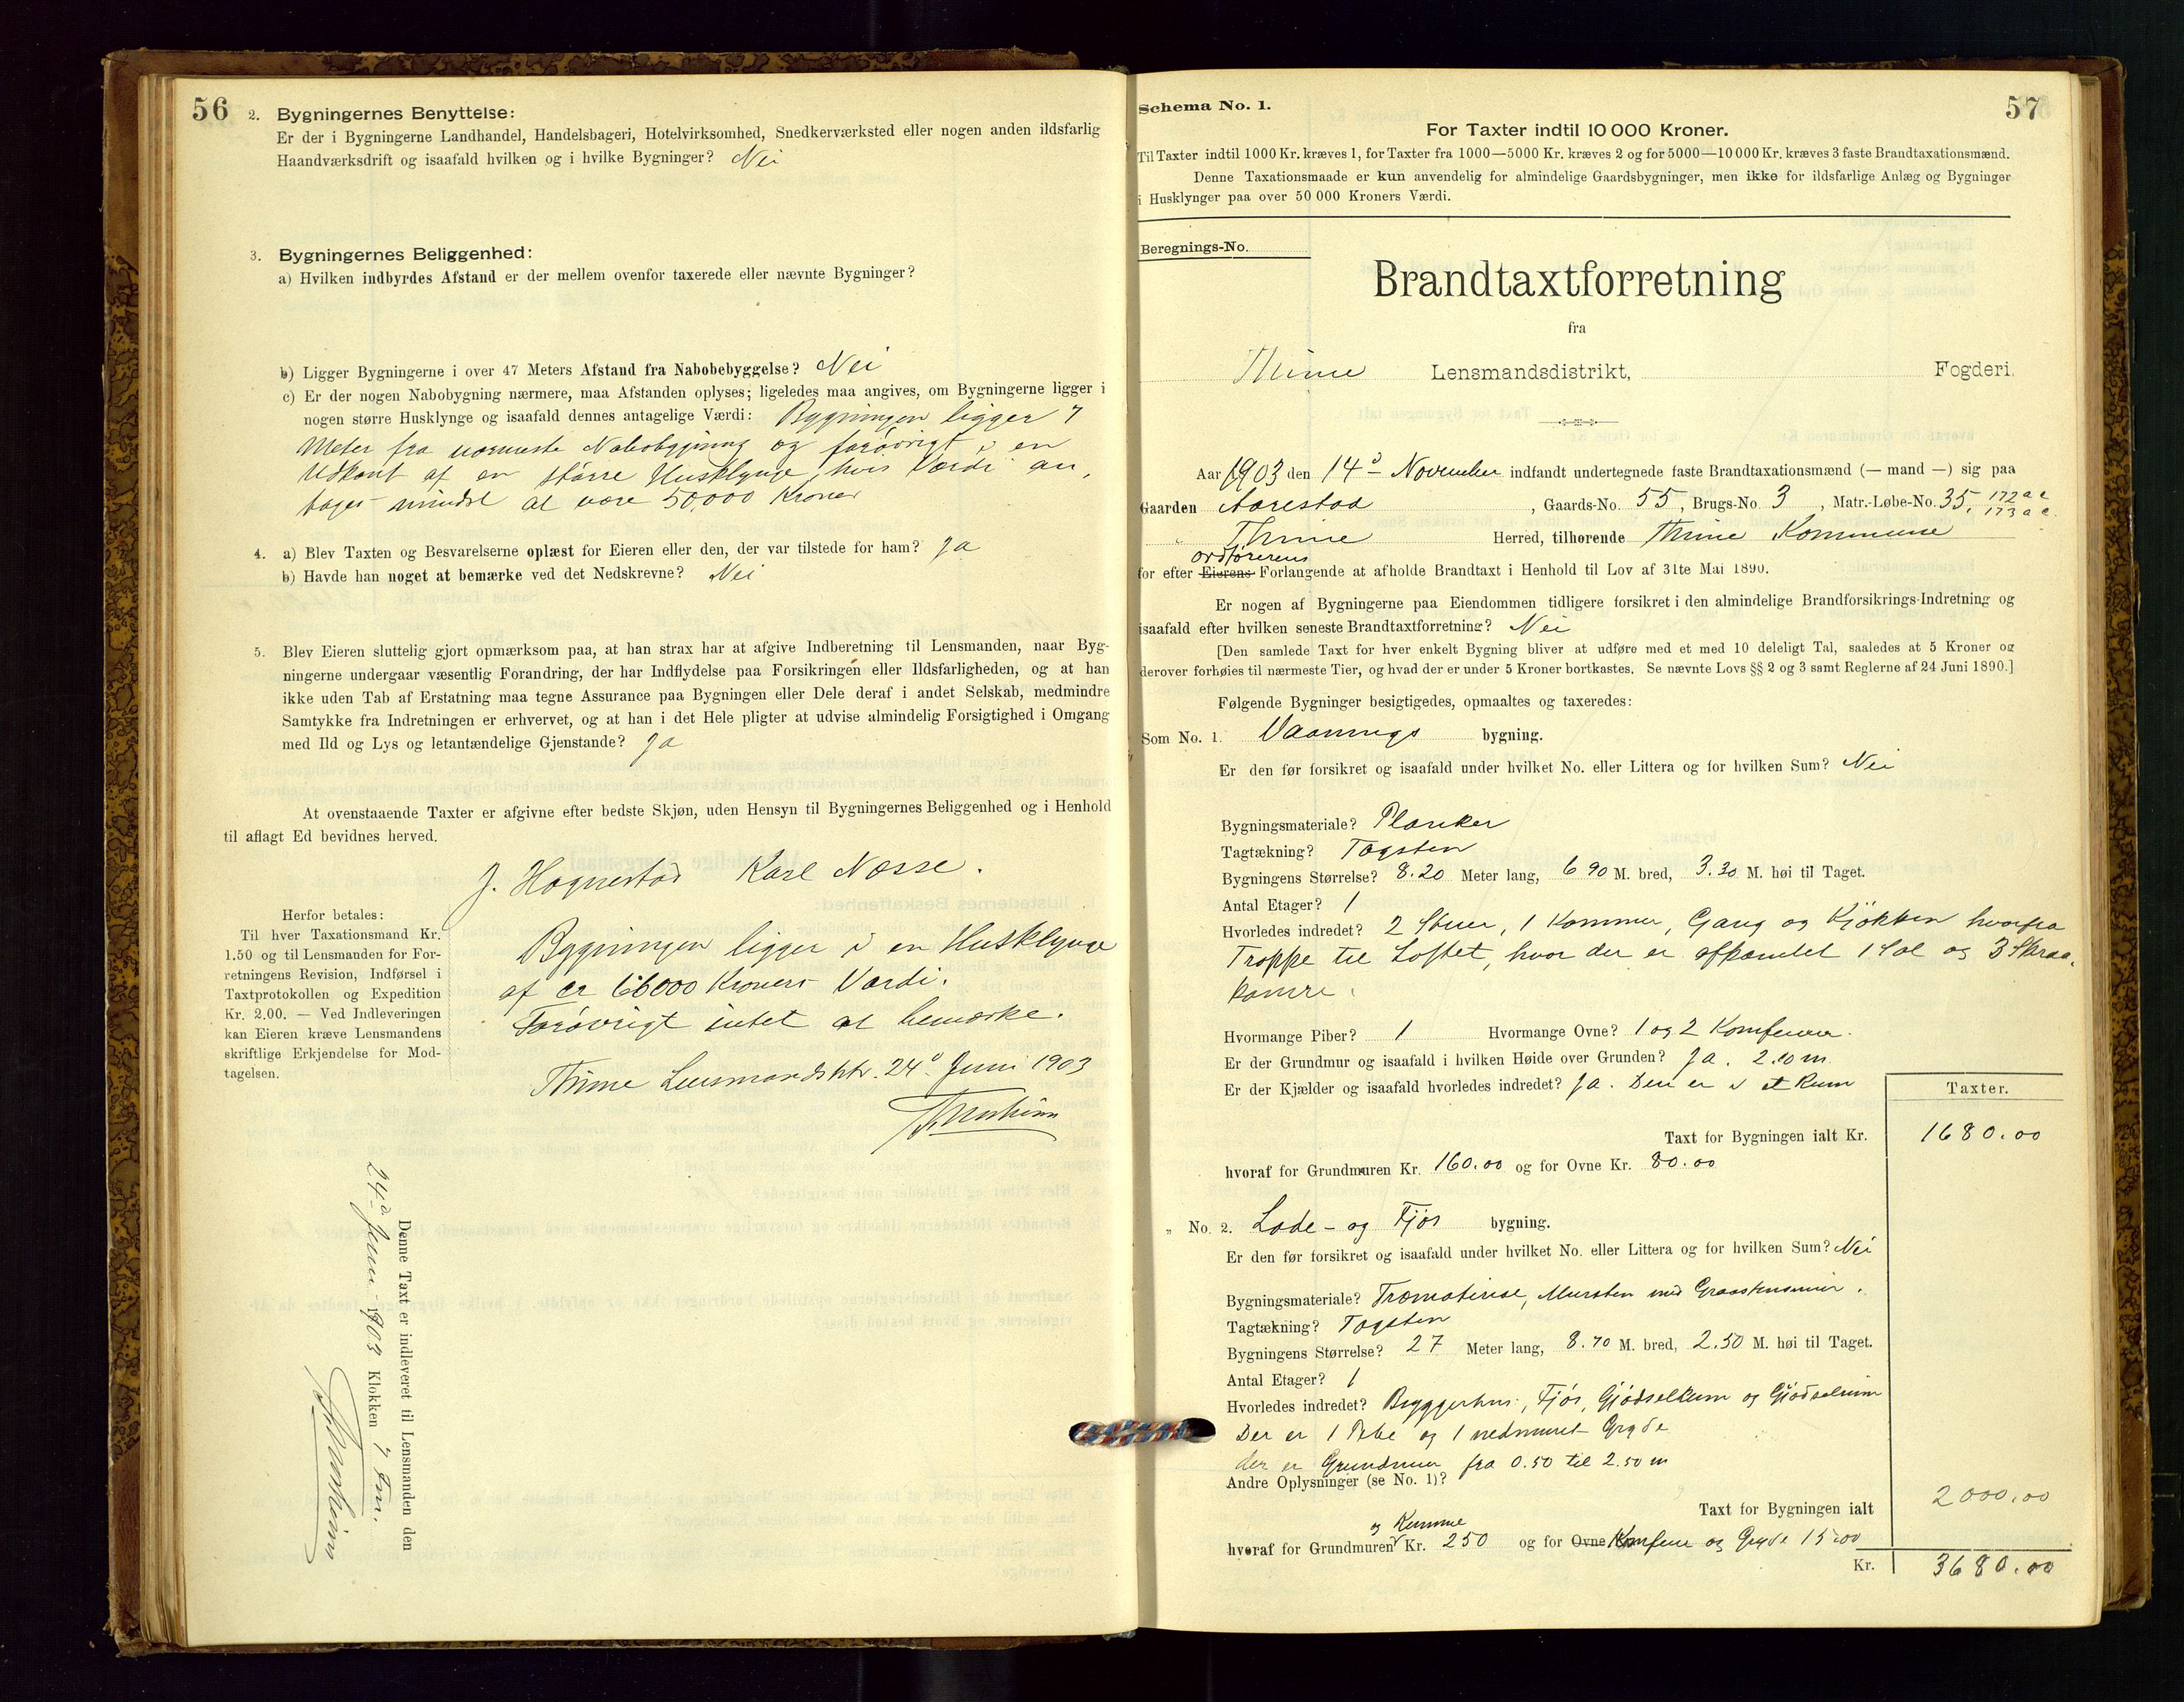 56
2. Bygningernes Benyttelse:
Er der i Bygningerne Landhandel, Handelsbageri, Hotelvirksomhed, Snedkerværksted eller nogen anden ildsfarlig
Haandværksdrift og isaafald hvilken og i hvilke Bygninger? Nei
3. Bygningernes Beliggenhed:
a) Hvilken indbyrdes Afstand er der mellem ovenfor taxerede eller nævnte Bygninger?
b) Ligger Bygningerne i over 47 Meters Afstand fra Nabobebyggelse? Nei
c) Er der nogen Nabobygning nærmere, maa Afstanden oplyses; ligeledes maa angives, om Bygningerne ligger i
nogen større Husklynge og isaafald dennes antagelige Værdi: Bygningen ligger 7
Meter fra nærmeste Nabobygning og forøvrigt i en
Udkant af en større Husklynge, hvis Værdi an-
tages mindst at være 50,000 Kroner
4. a) Blev Taxten og Besvarelserne oplæst for Eieren eller den, der var tilstede for ham? Ja
b) Havde han noget at bemærke ved det Nedskrevne? Nei
5. Blev Eieren sluttelig gjort opmærksom paa, at han strax har at afgive Indberetning til Lensmanden, naar Byg-
ningerne undergaar væsentlig Forandring, der har Indflydelse paa Forsikringen eller Ildsfarligheden, og at han
ikke uden Tab af Erstatning maa tegne Assurance paa Bygningen eller Dele deraf i andet Selskab, medmindre
Samtykke fra Indretningen er erhvervet, og at han i det Hele pligter at udvise almindelig Forsigtighed i Omgang
med Ild og Lys og letantændelige Gjenstande? Ja
At ovenstaaende Taxter er afgivne efter bedste Skjøn, uden Hensyn til Bygningernes Beliggenhed og i Henhold
til aflagt Ed bevidnes herved.
J. Hognestad Karl Næsse.
Herfor betales:
Til hver Taxationsmand Kr.
1.50 og til Lensmanden for For-
retningens Revision, Indførsel i
Taxtprotokollen og Expedition
Kr. 2.00. — Ved Indleveringen
kan Eieren kræve Lensmandens
skriftlige Erkjendelse for Mod-
tagelsen.
Bygningen ligger i en Husklynge
af ca 66000 Kroners Værdi.
Forøvrigt intet at bemærke.
Thime Lensmandsktr. 24d Juni 1903
Denne Taxt er indleveret til Lensmanden den
24d Juni 1903 Klokken 7 Fm.
Schema No. 1.
57
For Taxter indtil 10 000 Kroner.
Til Taxter indtil 1000 Kr. kræves 1, for Taxter fra 1000—5000 Kr. kræves 2 og for 5000—10 000 Kr. kræves 3 faste Brandtaxationsmænd.
Denne Taxationsmaade er kun anvendelig for almindelige Gaardsbygninger, men ikke for ildsfarlige Anlæg og Bygninger
i Husklynger paa over 50 000 Kroners Værdi.
Beregnings-No.
Brandtaxtforretning
fra
Thime Lensmandsdistrikt, Fogderi.
Aar 1903 den 14d November indfandt undertegnede faste Brandtaxationsmænd (— mand —) sig paa
Gaarden Aarestad, Gaards-No. 55, Brugs-No. 3, Matr.-Løbe-No. 35,
Thime Herred, tilhørende Thime Kommune
ordførerens
for efter Eierens Forlangende at afholde Brandtaxt i Henhold til Lov af 31te Mai 1890.
Er nogen af Bygningerne paa Eiendommen tidligere forsikret i den almindelige Brandforsikrings-Indretning og
isaafald efter hvilken seneste Brandtaxtforretning? Nei
[Den samlede Taxt for hver enkelt Bygning bliver at udføre med et med 10 deleligt Tal, saaledes at 5 Kroner og
derover forhøies til nærmeste Tier, og hvad der er under 5 Kroner bortkastes. Se nævnte Lovs §§ 2 og 3 samt Reglerne af 24 Juni 1890.]
Følgende Bygninger besigtigedes, opmaaltes og taxeredes:
Som No. 1. Vaanings bygning.
Er den før forsikret og isaafald under hvilket No. eller Littera og for hvilken Sum? Nei
Bygningsmateriale? Planker
Tagtækning? Tagsten
Bygningens Størrelse? 8.20 Meter lang, 6 90 M. bred, 3.30 M. høi til Taget.
Antal Etager? 1
Hvorledes indredet? 2 Stuer, 1 Kammer, Gang og Kjøkken hvorfra
Trappe til Loftet, hvor der er afpanelet 1 Sal og 3 Skraa-
kamre.
Hvormange Piber? 1 Hvormange Ovne? 1 og 2 Komfurer.
Er der Grundmur og isaafald i hvilken Høide over Grunden? Ja. 2.10 m
Er der Kjælder og isaafald hvorledes indredet? Ja. Den er i et Rum
Taxter.
Taxt for Bygningen ialt Kr. 1680.00
hvoraf for Grundmuren Kr. 160.00 og for Ovne Kr. 80.00
„ No. 2. Lade- og Fjøs bygning.
Er den før forsikret og isaafald under hvilket No. eller Littera og for hvilken Sum? Nei
Bygningsmateriale? Træmateriae, Mursten med Graastensmur.
Tagtækning? Tagsten
Bygningens Størrelse? 27 Meter lang, 8.70 M. bred, 2.50 M. høi til Taget.
Antal Etager? 1
Hvorledes indredet? Bryggerhus, Fjøs, Gjødselkum og Gjødselrum
Der er 1 Pibe og 1 nedmuret Gryde
der er Grundmur fra 0.50 til 2.50 m
Andre Oplysninger (se No. 1)?
Taxt for Bygningen ialt 2000.00
og Kumme
hvoraf for Grundmuren Kr. 250 og for Ovne Komfur og Gryde 15.00
Kr. 3680.00